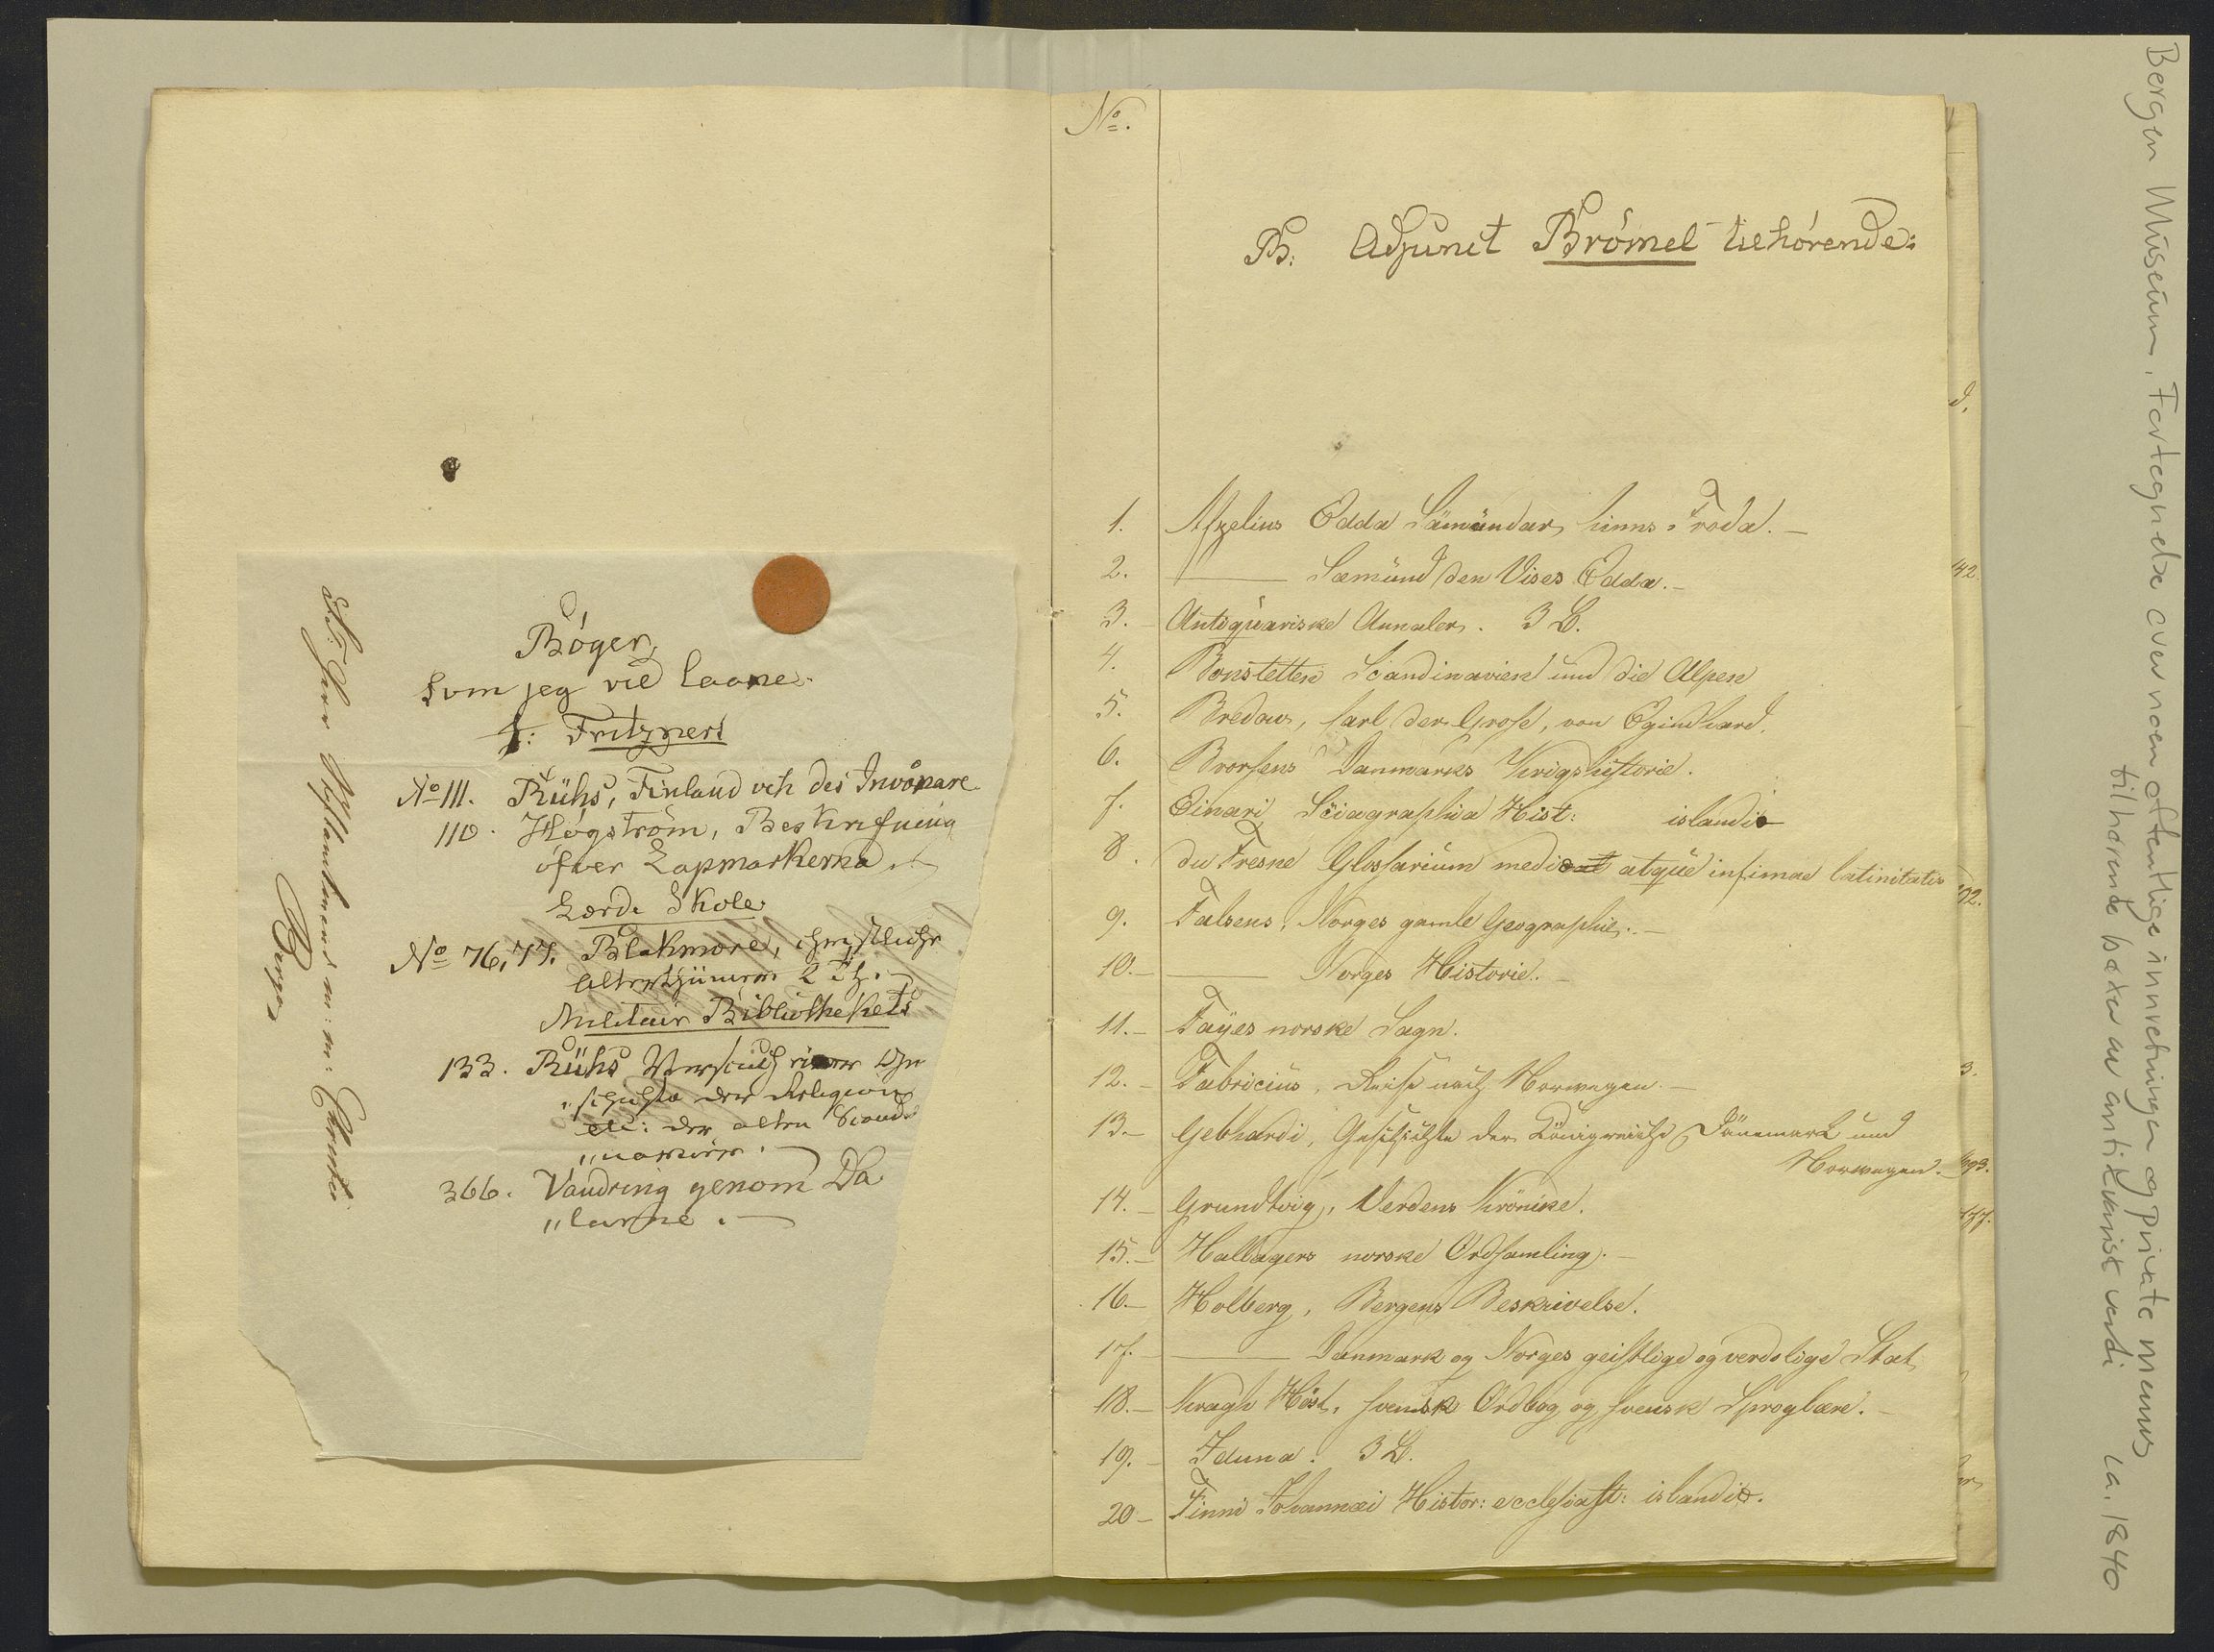 Bøger,
som jeg vil laane.
f: Fritzners
No 111. Rühs, Finland och des Invånare
110. Högström, Beskrifning
öfver Lapmarkerna
Lærde Skole
No 76, 77. Blakmore, christliche
Alterthümer 2 Th.
Militair Bibliothekets
133. Rühs Versuch einer Ge
"schichte der Religion
etc: der alten Scandi
"navier.
366. Vandring genom Da
"larne.
S. T. Herr Stiftamtmand
Bergen
No.
B: Adjunct Brömel tilhörende:
1. Afzelius Edda Sämundar hinns Froda.
2. — Sæmund den Vises Edda.
3. Antiquariske Annaler. 3 B.
4. Bonstetten Scandinavien und die Alpen
5. Bredow, Carl der Grosse, von Eginhard.
6. Brorsens Danmarks Krigshistorie.
7. Einari Sciagraphia Hist: islandiæ
8. du Fresne Glossarium mediæ atque infimae latinitatis
9. Falsens, Norges gamle Geographie.
10. — Norges Historie.
11. Fayes norske Sagn.
12. Fabricius, Reise nach Norwegen.
13. Gebhardi, Geschichte der Königreiche Dänemark und
Norwegen.
14. Grundtvig, Verdens Krönike.
15. Hallagers norske Ordsamling.
16. Holberg, Bergens Beskrivelse.
17. — Danmark og Norges geistlige og verdslige Stat
18. Kragh Höst, svensk Ordbog og svensk Sproglære.
19. Iduna. 3 B.
20. Finni Johannæi Histor: ecclesiast: islandiæ.
d.
142.
192.
3.
193.
177.
Bergen Museum. Fortegnelse over noen offentlige innretninger og private menns
tilhørende bøker av antikvarisk verdi ca. 1840